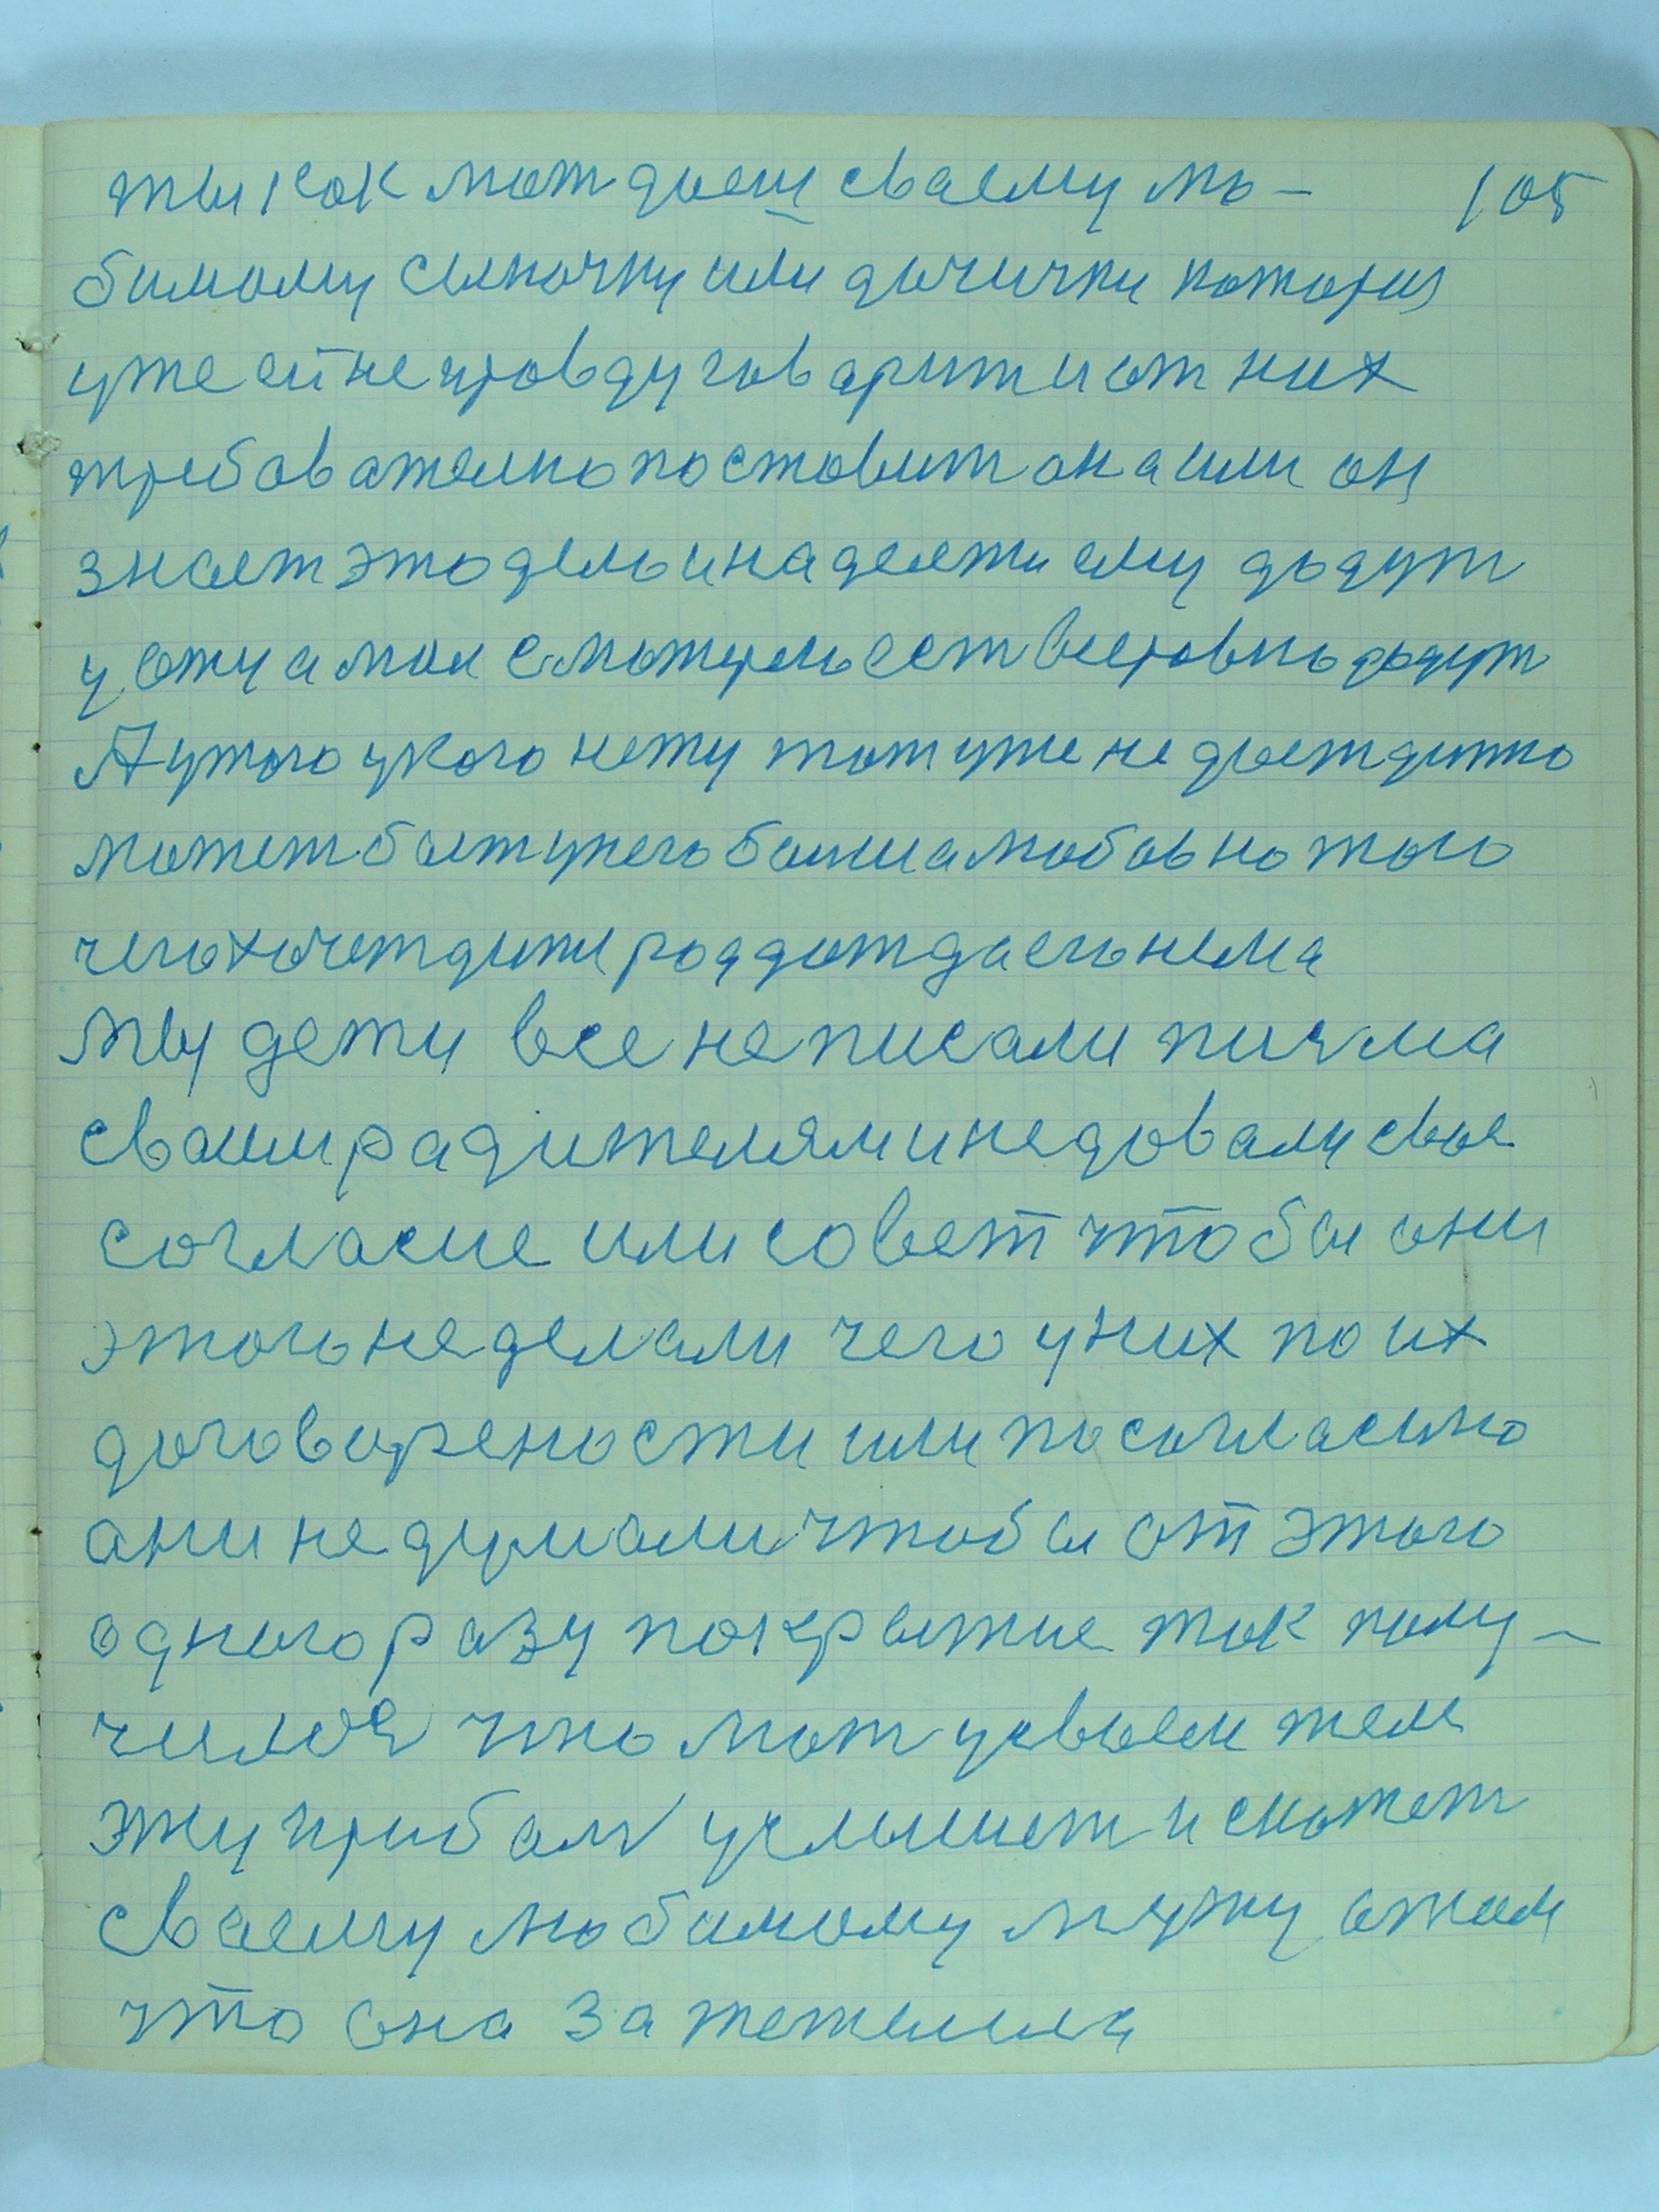 ты как мат даеш сваему лю- 105
бимому сыночку или дочички которыя
уже ей не правду говарит и от них
требавателно поставит она или он
знает это дело и надеети ему дадут
у отца мол с матирю ест все ровно дадут
А у того у кого нету тот уже не дает дитю
может быт у него болша любов но того
чего хочет дитя роддат да его нема
Мы дети все не писали писма
сваим радителям и не довали свое
согласие или совет чтобы они
этого не делали чего у них по их
договорености или по согласию
они не думали чтобы от этого
одного разу покрытие так полу-
чился что мат у своем теле
эту прибал услышет и скажет
сваему любимому мужу о том
что она затежелила